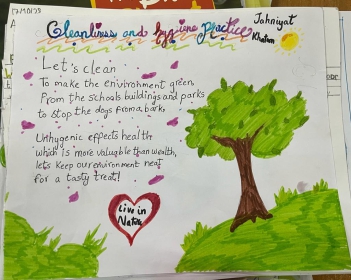 Cleanliness and hygiene Practice
Jahniyat
Khatun
Let's clean
To make the environment green,
From the schools buildings and parks
to stop the dogs from a barks
Unhygenic effects health
which is more valuable than wealth,
let's keep our environment neat
for a tasty treat!
Live in
Nature